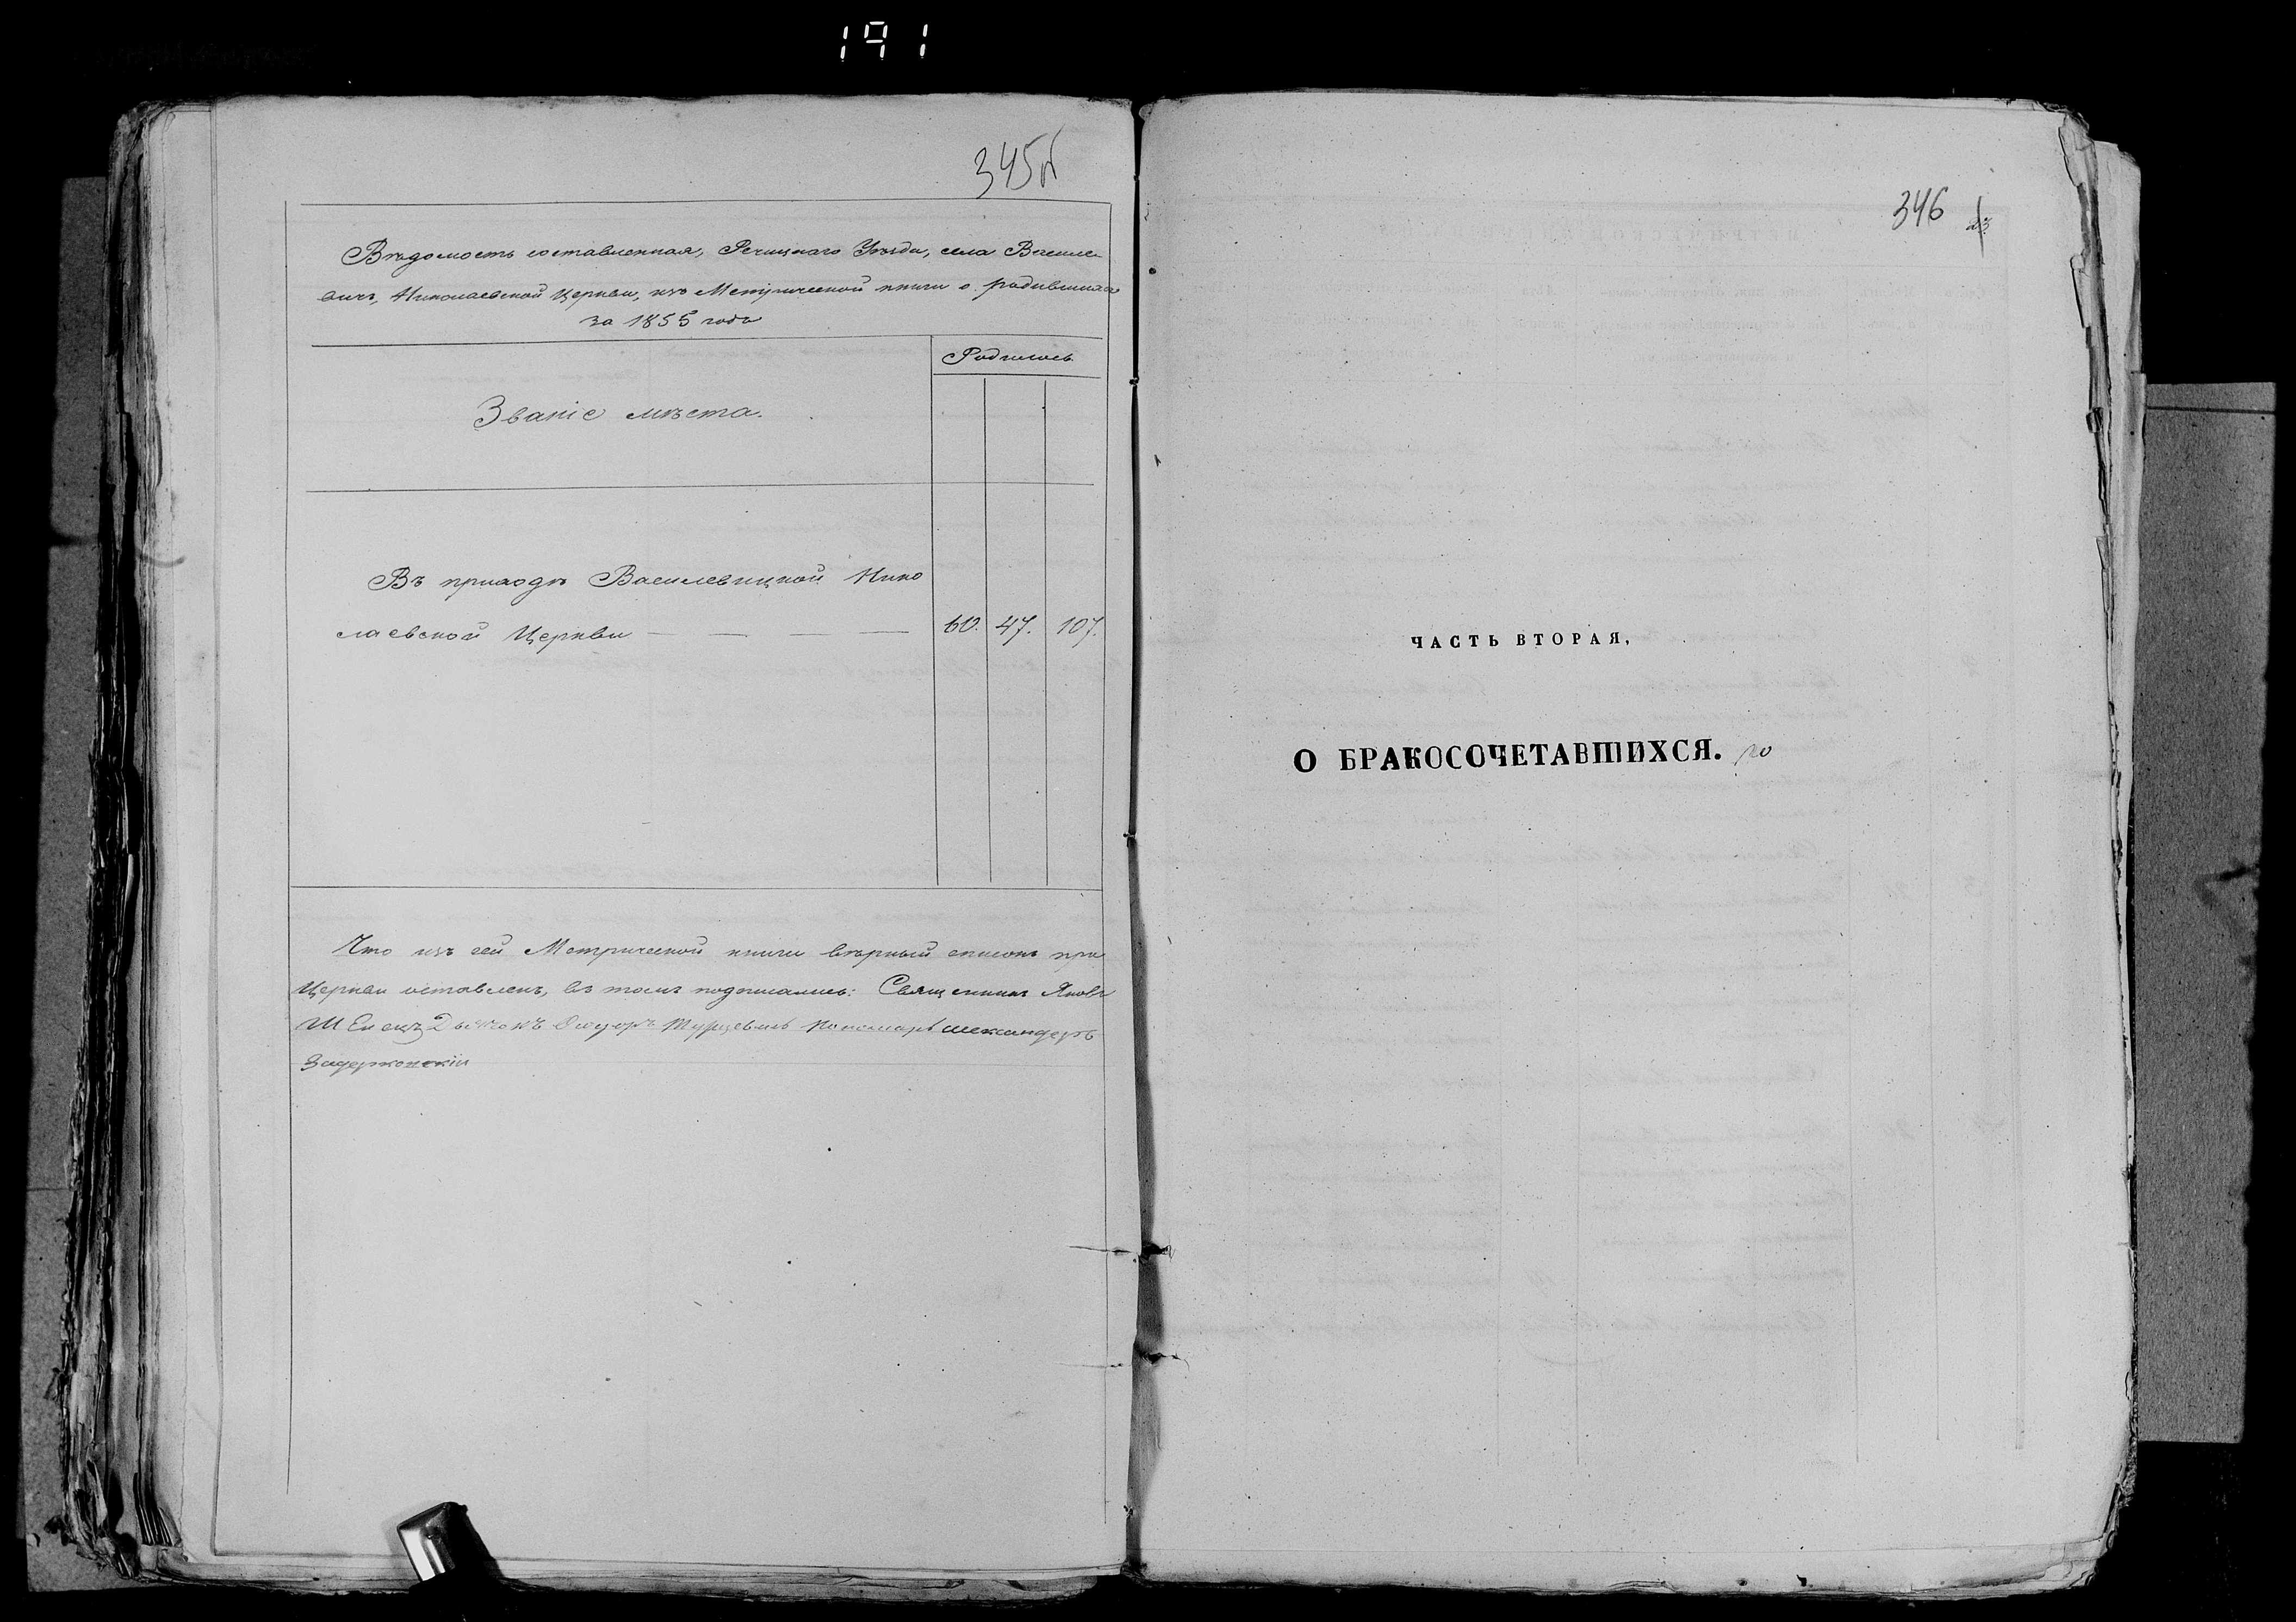 191
345об
Вѣдомость составленная, Рѣчицкаго Уѣзда, села Василе-
вичъ, Николаевской Церкви, изъ Метрической книги о родившихся
за 1855 годъ
Родилось
Званіе мѣста.
Въ приходѣ Василевицкой Нико
лаевской Церкви — — — — 60. 47. 107.
Что изъ сей Метрической книги вѣрный списокъ при
Церкви оставленъ, въ томъ подписались: Священникъ Яковъ
Дьячокъ Ѳеодоръ Пономарь Александеръ
346
23
ЧАСТЬ ВТОРАЯ,
О БРАКОСОЧЕТАВШИХСЯ.